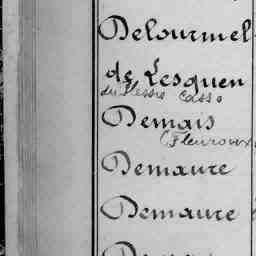 Delourmel
de Lesquen
du Plessis Casso
Demais
(Fleuroux
Demaure
Demaure